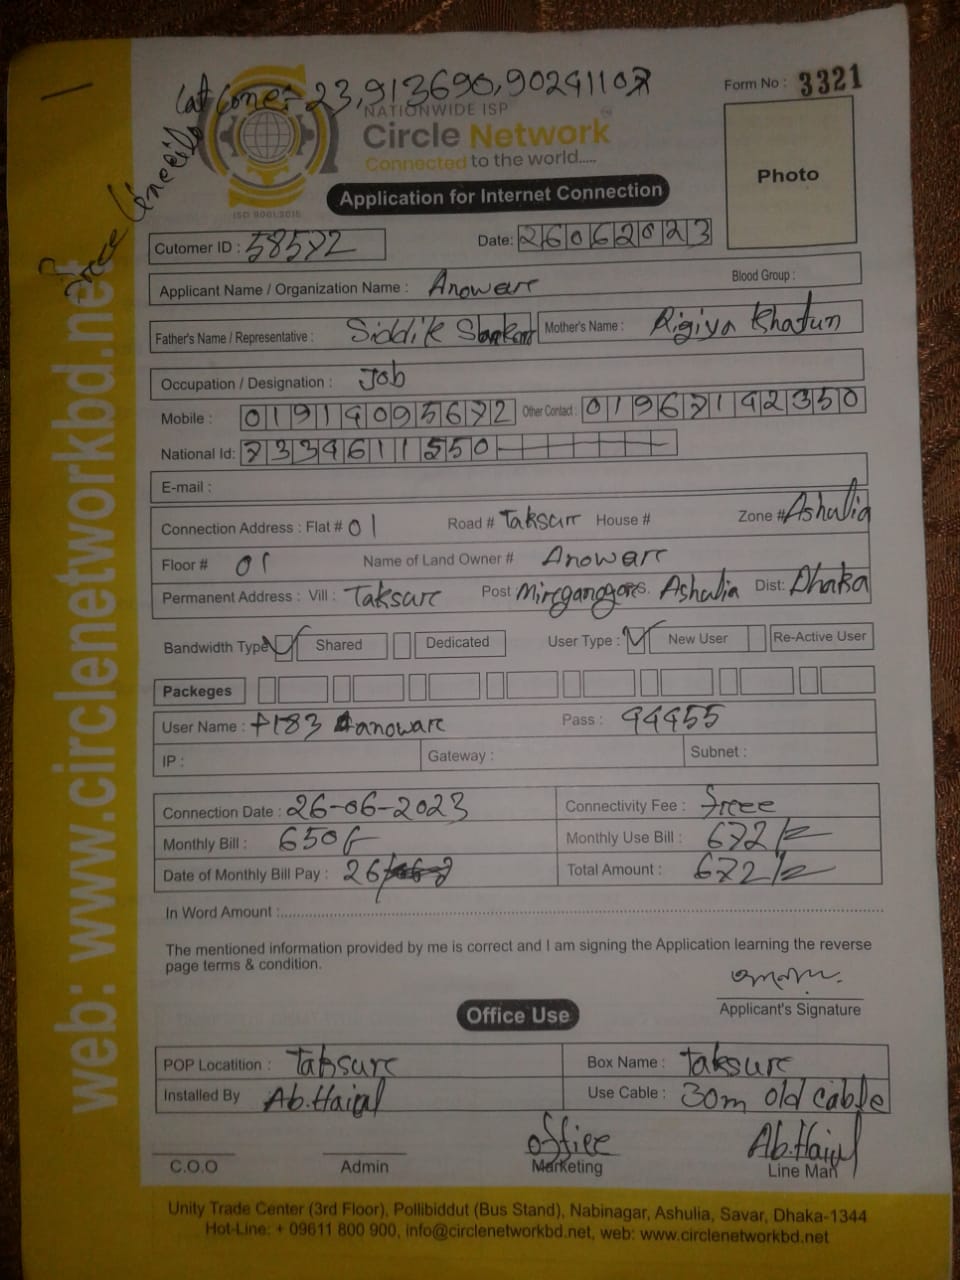 Lat Cone: 23,913690,90291107
Free Uneeilo
NATIONWIDE ISP
Circle Network
Connected to the world.....
ISO 9001:2015
Form No : 3321
Photo
Application for Internet Connection
Cutomer ID : 58572
Date: 26062023
Applicant Name / Organization Name : Anowar
Blood Group :
Father's Name / Representative : Siddik
Mother's Name : Rigiya Khatun
Occupation / Designation : Job
Mobile : 01919095672
Other Contact : 01967192350
National Id: 7334611550
E-mail :
Connection Address : Flat # 01 Road # Taksur House # Zone # Ashulia
Floor # 01 Name of Land Owner # Anowar
Permanent Address : Vill : Taksur Post P.S. Ashulia Dist: Dhaka
Bandwidth Type Shared Dedicated User Type : New User Re-Active User
Packeges
User Name : t183 anowar Pass : 94455
IP : Gateway : Subnet :
Connection Date : 26-06-2023 Connectivity Fee : free
Monthly Bill : 650/ Monthly Use Bill : 672/=
Date of Monthly Bill Pay : 26/ Total Amount : 672/=
In Word Amount :
The mentioned information provided by me is correct and I am signing the Application learning the reverse
page terms & condition.
Applicant's Signature
Office Use
POP Locatition : Taksur Box Name : Taksur
Installed By Ab.Haiul Use Cable : 30m old cable
office Ab.Haiul
C.O.O Admin Marketing Line Man
Unity Trade Center (3rd Floor), Pollibiddut (Bus Stand), Nabinagar, Ashulia, Savar, Dhaka-1344
Hot-Line: + 09611 800 900, info@circlenetworkbd.net, web: www.circlenetworkbd.net
web: www.circlenetworkbd.net